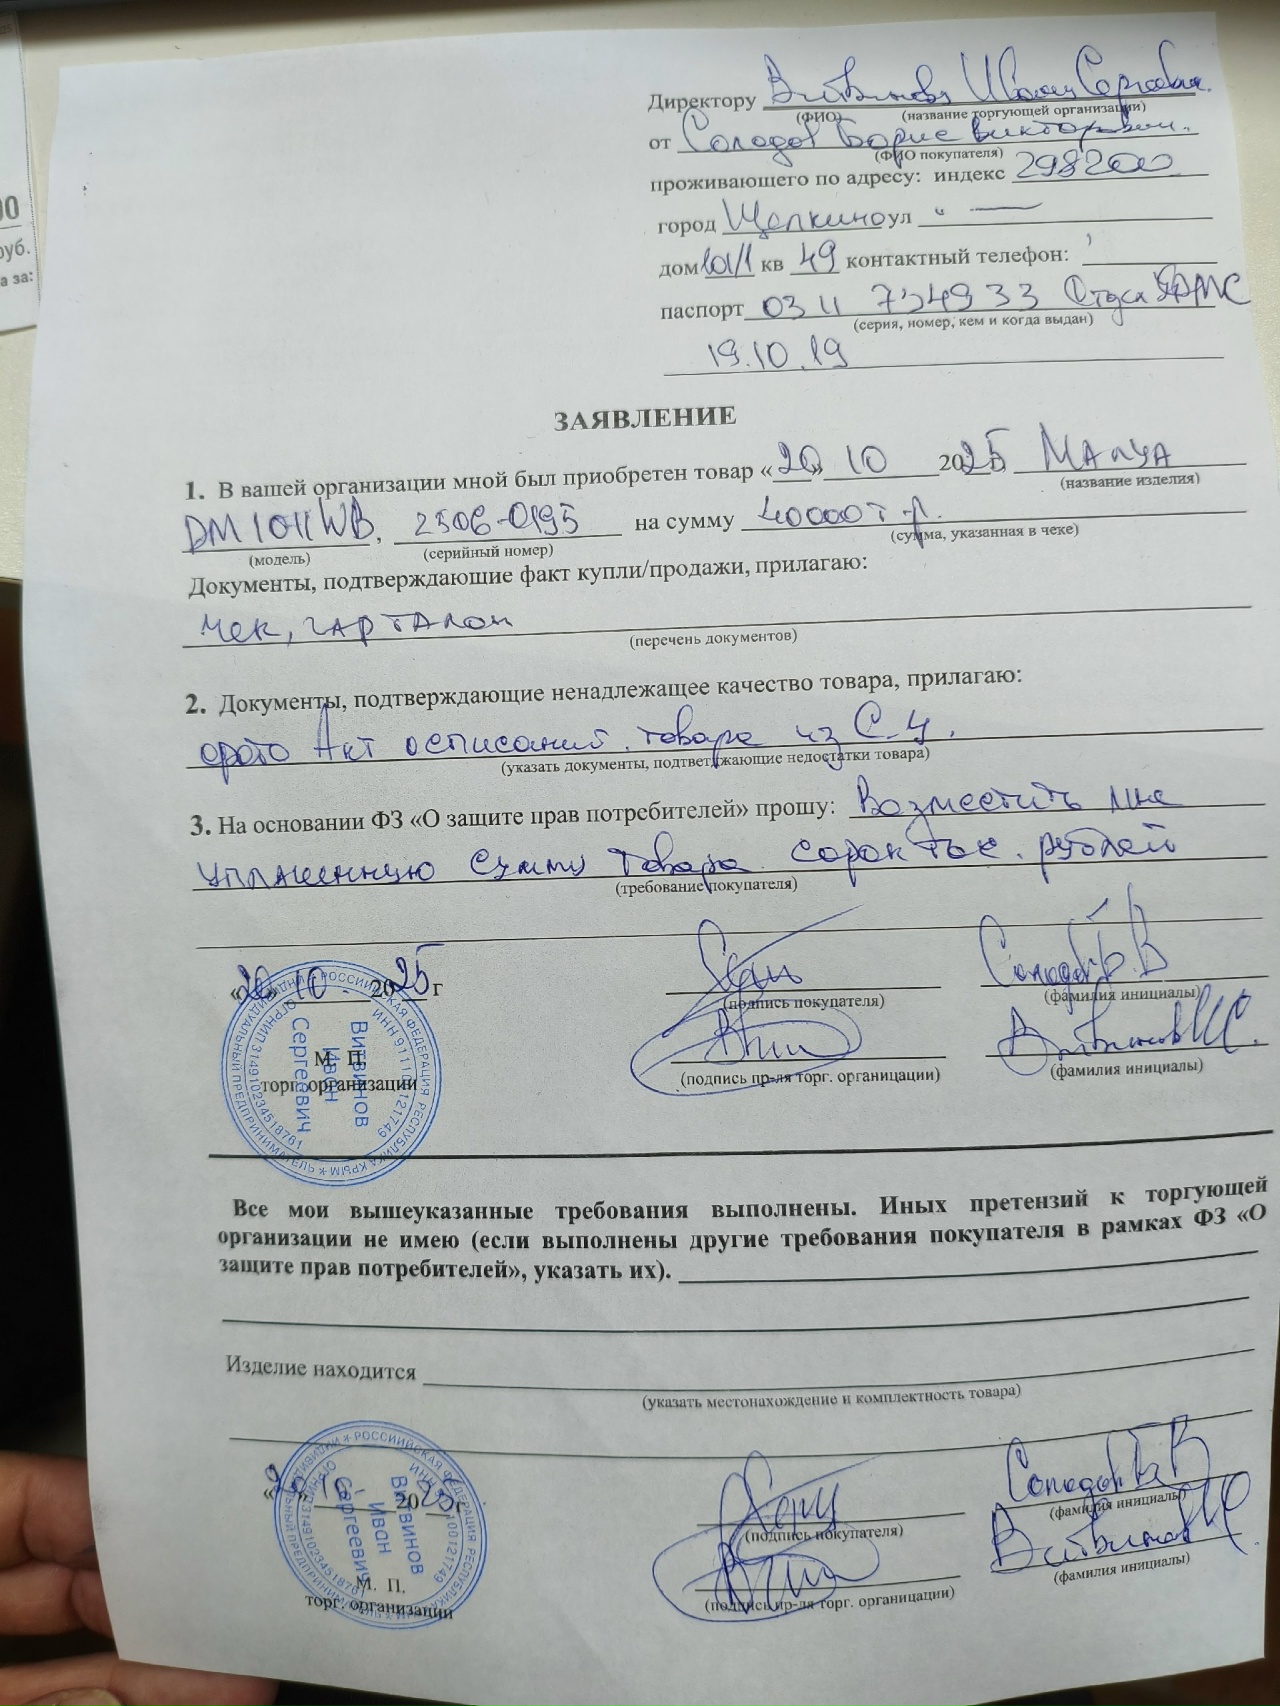 Директору Витвинову Ивану Сергеевичу.
(ФИО) (название торгующей организации)
от Солодов Борис Викторович.
(ФИО покупателя)
проживающего по адресу: индекс 298200
город Щелкино ул " —
дом 101/1 кв 49 контактный телефон:
паспорт 03 11 734933 Отдел УФМС
(серия, номер, кем и когда выдан)
19.10.19
ЗАЯВЛЕНИЕ
1. В вашей организации мной был приобретен товар «20» 10 2025
(название изделия)
DM1011WB, 2506-0195 на сумму 40000 т.р.
(модель) (серийный номер) (сумма, указанная в чеке)
Документы, подтверждающие факт купли/продажи, прилагаю:
чек, гарталон
(перечень документов)
2. Документы, подтверждающие ненадлежащее качество товара, прилагаю:
фото Акт осписаний товара из С.Ц.
(указать документы, подтверждающие недостатки товара)
3. На основании ФЗ «О защите прав потребителей» прошу: Возместить мне
уплаченную сумму товара сорок тыс. рублей
(требование покупателя)
«20» 10 . 2025 г
Солодов Б.В
(подпись покупателя) (фамилия инициалы)
Витвинов И.С.
М. П.
торг. организации
(подпись пр-ля торг. органицации) (фамилия инициалы)
ИНДИВИДУАЛЬНЫЙ ПРЕДПРИНИМАТЕЛЬ * РОССИЙСКАЯ ФЕДЕРАЦИЯ РЕСПУБЛИКА КРЫМ *
ОГРНИП 314910234518761
Витвинов
Иван
Сергеевич
Все мои вышеуказанные требования выполнены. Иных претензий к торгующей
организации не имею (если выполнены другие требования покупателя в рамках ФЗ «О
защите прав потребителей», указать их).
Изделие находится
(указать местонахождение и комплектность товара)
«20» 10 2025 г.
Солодов Б.В
(подпись покупателя) (фамилия инициалы)
Витвинов И.С
М. П.
торг. организации
(подпись пр-ля торг. органицации) (фамилия инициалы)
Витвинов
Иван
Сергеевич